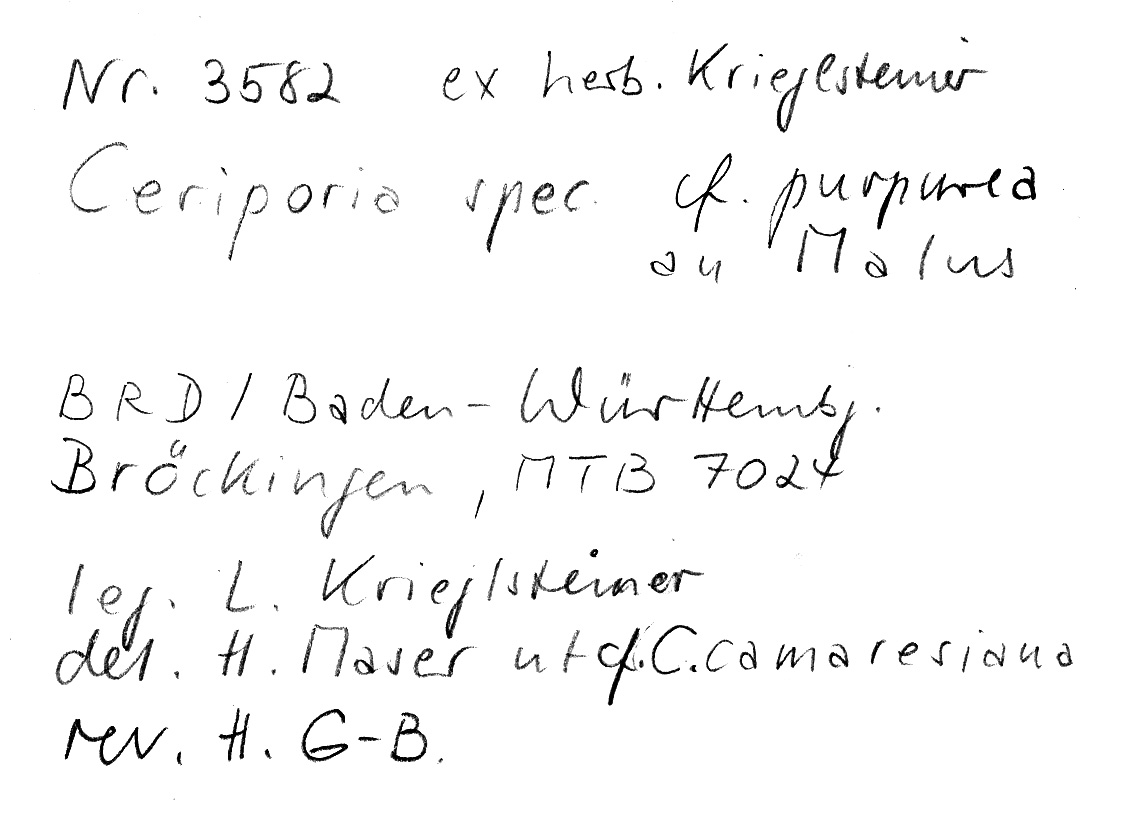 Nr. 3582 ex herb. Krieglsteiner
Ceriporia spec. cf. purpurea
an Malus
BRD / Baden-Württembg.
Bröckingen, MTB 7024
leg. L. Krieglsteiner
det. H. Maser ut cf. C. camaresiana
rev. H. G-B.